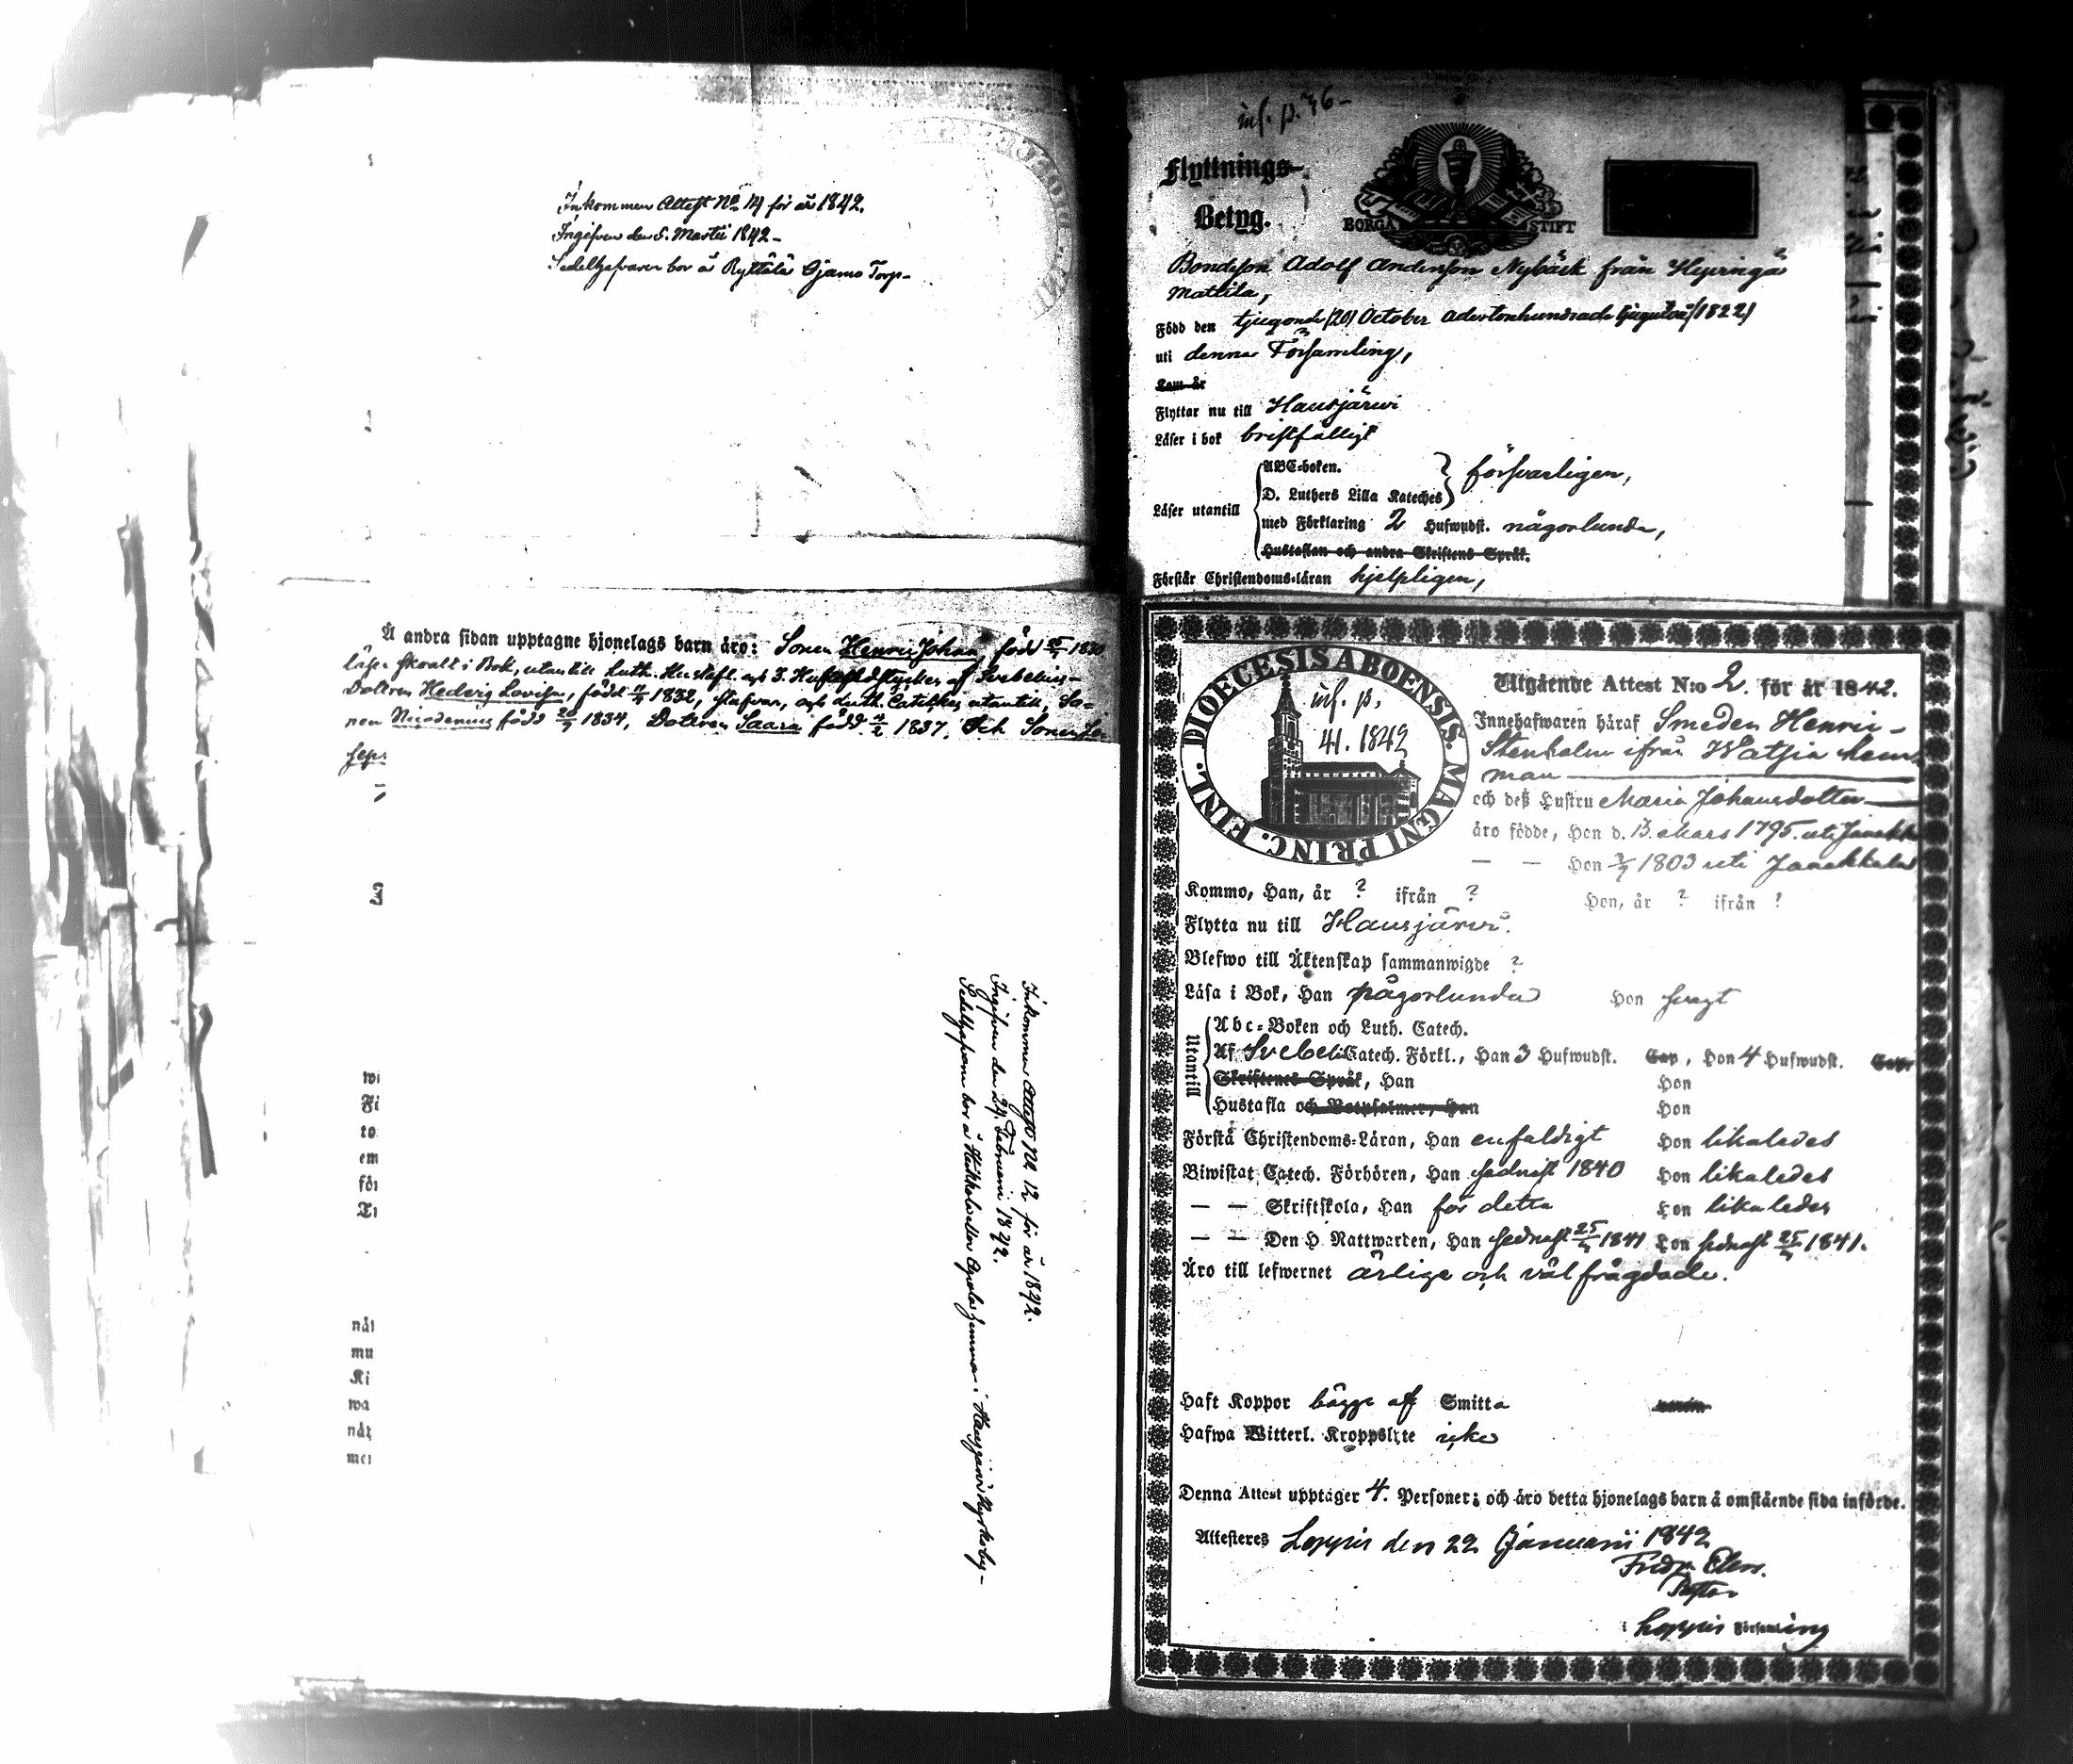 Inkommen Attest No 14 för år 1842.
Ingifven den 5. Martii 1842 -
Sedelhafvaren bor å Ryttälä Ojamo Torp -
Å andra sidan upptagne hjonelags barn äro: Sonen Henric Johan, född 1830
läser svalt i Bok, utantill Luth. Hustafl. och 3. Hufvudstycken af Svebelius -
Dottren Hedvig Lovisa, född 1832, stafvar, och Luth. Catches utantill, So-
nen Nicodemus född 1834, Dottren Saara född 1837, Och Sonen
Inkommen Attest No 12 för år 1842.
Ingifven den 24. Februarii 1842.
Sedelhafvaren bor å hemman i Hausjärvi Kyrkoby -
inf. p. 36 -
Flyttnings-
Betyg.
BORGÅ STIFT
Bondeson Adolf Andersson Nybäck från Hyvingä
Mattila,
Född den tjugonde (20) October adertonhundrade tjugutvå (1822)
uti denna Församling,
Kom år
Flyttar nu till Hausjärwi
Läser i bok bristfälligt
ABC-boken.
D. Luthers Lilla Kateches } försvarligen,
Läser utantill
med Förklaring 2 Hufwudst. någorlunda,
Hustaflan och andra Skriftens Språk.
Förstår Christendoms-läran hjelpligen,
DIOECESIS ABOENSIS. MAGNI PRINC. FINL.
inf. p.
41. 1842
Utgående Attest N:o 2. för år 1842.
Innehafwaren häraf Smeden Henric
Stenholm ifrån Watsia hem
man
och deß Hustru Maria Johansdotter
äro födde, Han d. 13. Mars 1795. uti Janakka
— — Hon 1803 uti Janakkala
Kommo, Han, år ? ifrån ? Hon, år ? ifrån ?
Flytta nu till Hausjärvi.
Blefwo till Äktenskap sammanwigde ?
Läsa i Bok, Han någorlunda Hon svagt
Utantill
Abc-Boken och Luth. Catech.
Af Svebelii Catech. Förkl., Han 3 Hufwudst. Cap, Hon 4 Hufwudst. Cap.
Skriftenes Språk, Han Hon
Hustafla och Botpsalmer, Han Hon
Förstå Christendoms-Läran, Han enfaldigt Hon likaledes
Biwistat Catech. Förhören, Han sednast 1840 Hon likaledes
— — Skriftskola, Han för detta Hon likaledes
— — Den H. Nattwarden, Han sednast 1841 Hon sednast 1841.
Äro till lefwernet ärlige och väl frägdade.
Haft Koppor bägge af Smitta
Hafwa Witterl. Kroppslyte icke
Denna Attest upptager 4. Personer; och äro detta hjonelags barn å omstående sida införde.
Attesteras Loppis den 22 Januarii 1842
Fredr.
Pastor
i Loppis Församling